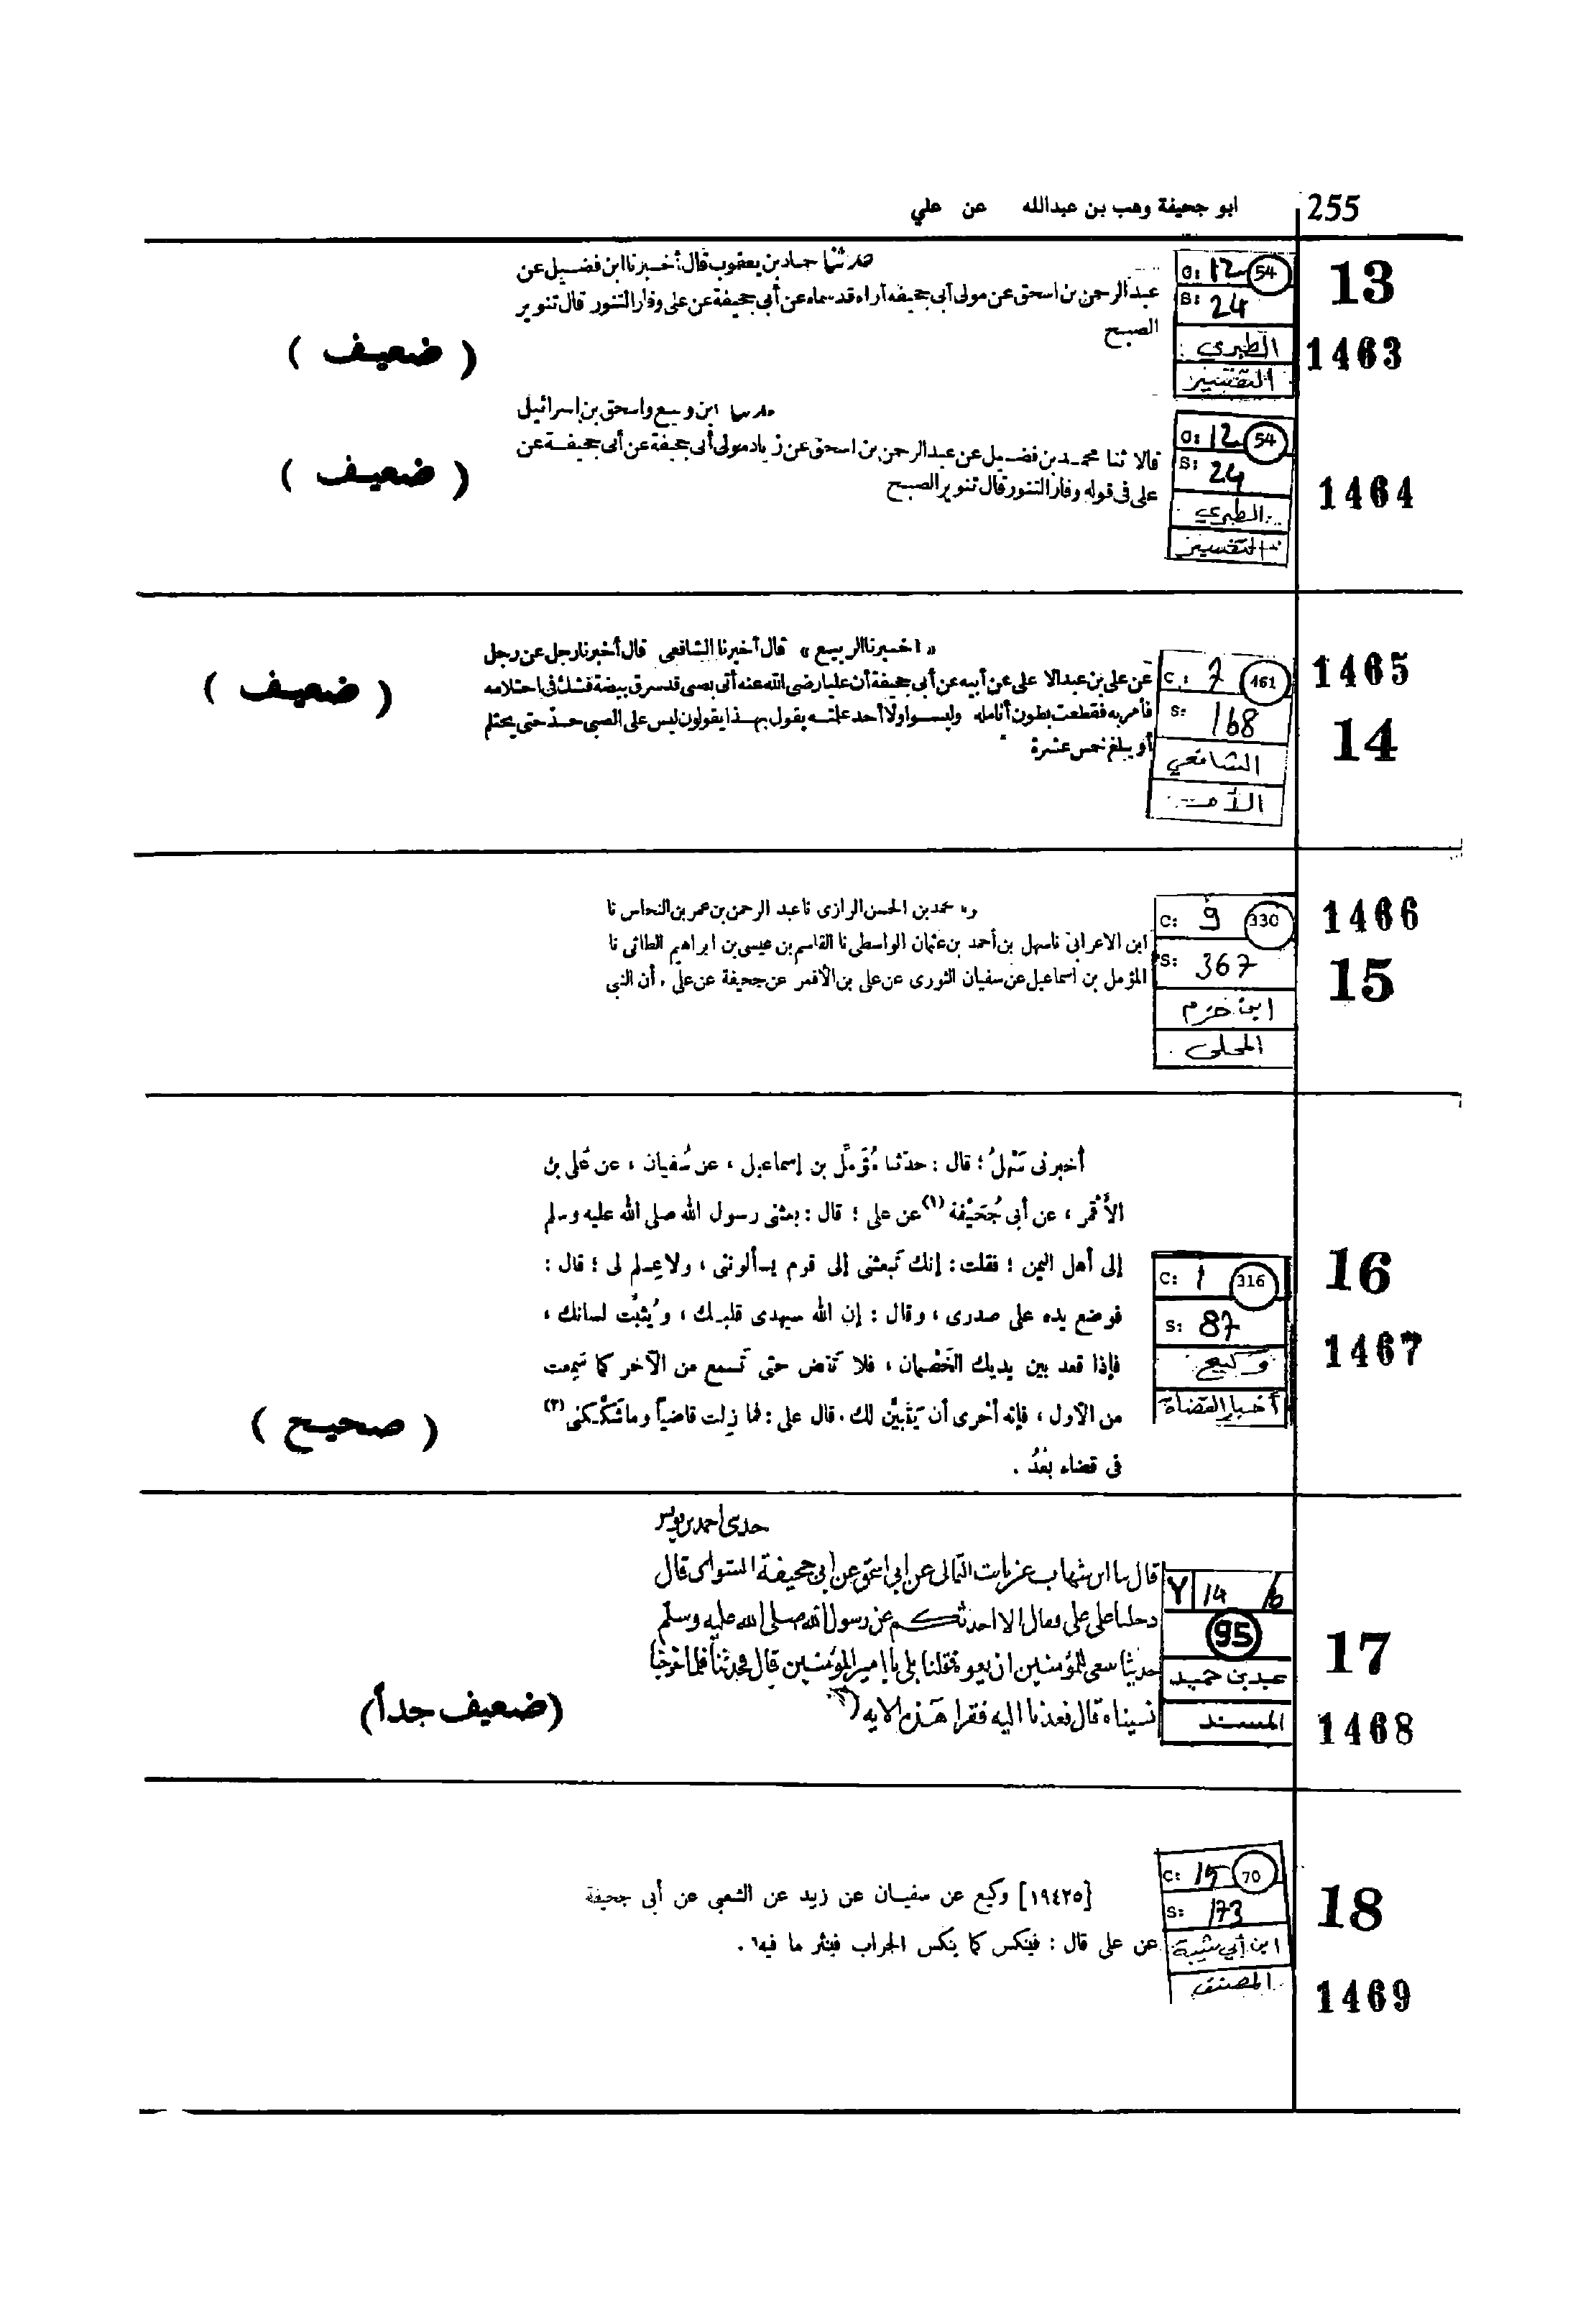 255
ابو جحيفة وهب بن عبدالله عن علي
13
1463
C: 12 54
S: 24
الطبري
التفسير
حدثنا حماد بن يعقوب قال أخبرنا ابن فضيل عن
عبد الرحمن بن اسحق عن مولى أبي جحيفة أراه قد سماه عن أبي جحيفة عن علي وفار التنور قال تنوير
الصبح
( ضعيف )
1464
C: 12 54
S: 24
الطبري
التفسير
حدثنا ابن وكيع واسحق بن اسرائيل
قالا ثنا محمد بن فضيل عن عبد الرحمن بن اسحق عن زياد مولى أبي جحيفة عن أبي جحيفة عن
على فى قوله وفار التنور قال تنوير الصبح
( ضعيف )
1465
14
C: 7 161
S: 168
الشافعي
الأم
« اخبرنا الربيع » قال أخبرنا الشافعى قال أخبرنا رجل عن رجل
عن على بن عبد الاعلى عن أبيه عن أبى جحيفة أن عليا رضى الله عنه أتى بصبى قد سرق بيضة فشك فى احتلامه
فأمر به فقطعت بطون أنامله وليسوا ولا أحد علمته يقول بهذا يقولون ليس على الصبى حد حتى يحتلم
أو يبلغ خمس عشرة
( ضعيف )
1466
15
C: 9 330
S: 367
ابن حزم
المحلى
محمد بن الحسن الرازى نا عبد الرحمن بن عمر بن النحاس نا
ابن الاعرابى نا سهل بن أحمد بن عثمان الواسطى نا القاسم بن عيسى بن ابراهيم الطائى نا
المؤمل بن اسماعيل عن سفيان الثورى عن على بن الأقمر عن جحيفة عن على . أن النبى
16
1467
C: 1 316
S: 87
وكيع
أخبار القضاة
أخبرنى سَهْلُ ؛ قال : حدّثنا مُؤَمّلُ بن إسماعيل ، عن سُفيان ، عن عَلى بن
الأَقْمَر ، عن أبى جُحَيْفة (١) عن على ؛ قال : بعثنى رسول الله صلى الله عليه وسلم
إلى أهل اليمن ؛ فقلت : إنك تَبعثنى إلى قوم يسألوننى ، ولا عِلم لى ؛ قال :
فوضع يده على صدرى ، وقال : إن الله سيهدى قلبك ، ويُثبِّت لسانك ،
فإذا قعد بين يديك الخَصْمان ، فلا تَقض حتى تَسمع من الآخر كما سَمِعت
من الأول ، فإنه أحْرى أن يَتَبيَّن لك . قال على : فما زِلت قاضياً وما شَكْكنى (٢)
فى قضاء بَعْدُ .
( صحيح )
17
1468
Y 14 b
95
عبد بن حميد
المسند
حدثنى احمد بن يونس
قال ثنا ابن شهاب عن ثابت الثمالى عن ابى اسحق عن ابى جحيفة السوائى قال
دخلنا على على فقال الا احدثكم عن رسول الله صلى الله عليه وسلم
حديثا ينبغى للمؤمنين ان يعوه فقلنا بلى يا امير المؤمنين قال فحدثنا فلما خرجنا
نسيناه قال فعدنا اليه فقرا هذه الايه
(ضعيف جداً)
18
1469
C: 15 70
S: 173
ابن أبي شيبة
المصنف
[١٩٤٢٥] وكيع عن سفيان عن زيد عن الشعبى عن أبى جحيفة
عن على قال : فينكس كما ينكس الجراب فينثر ما فيه ٦ .